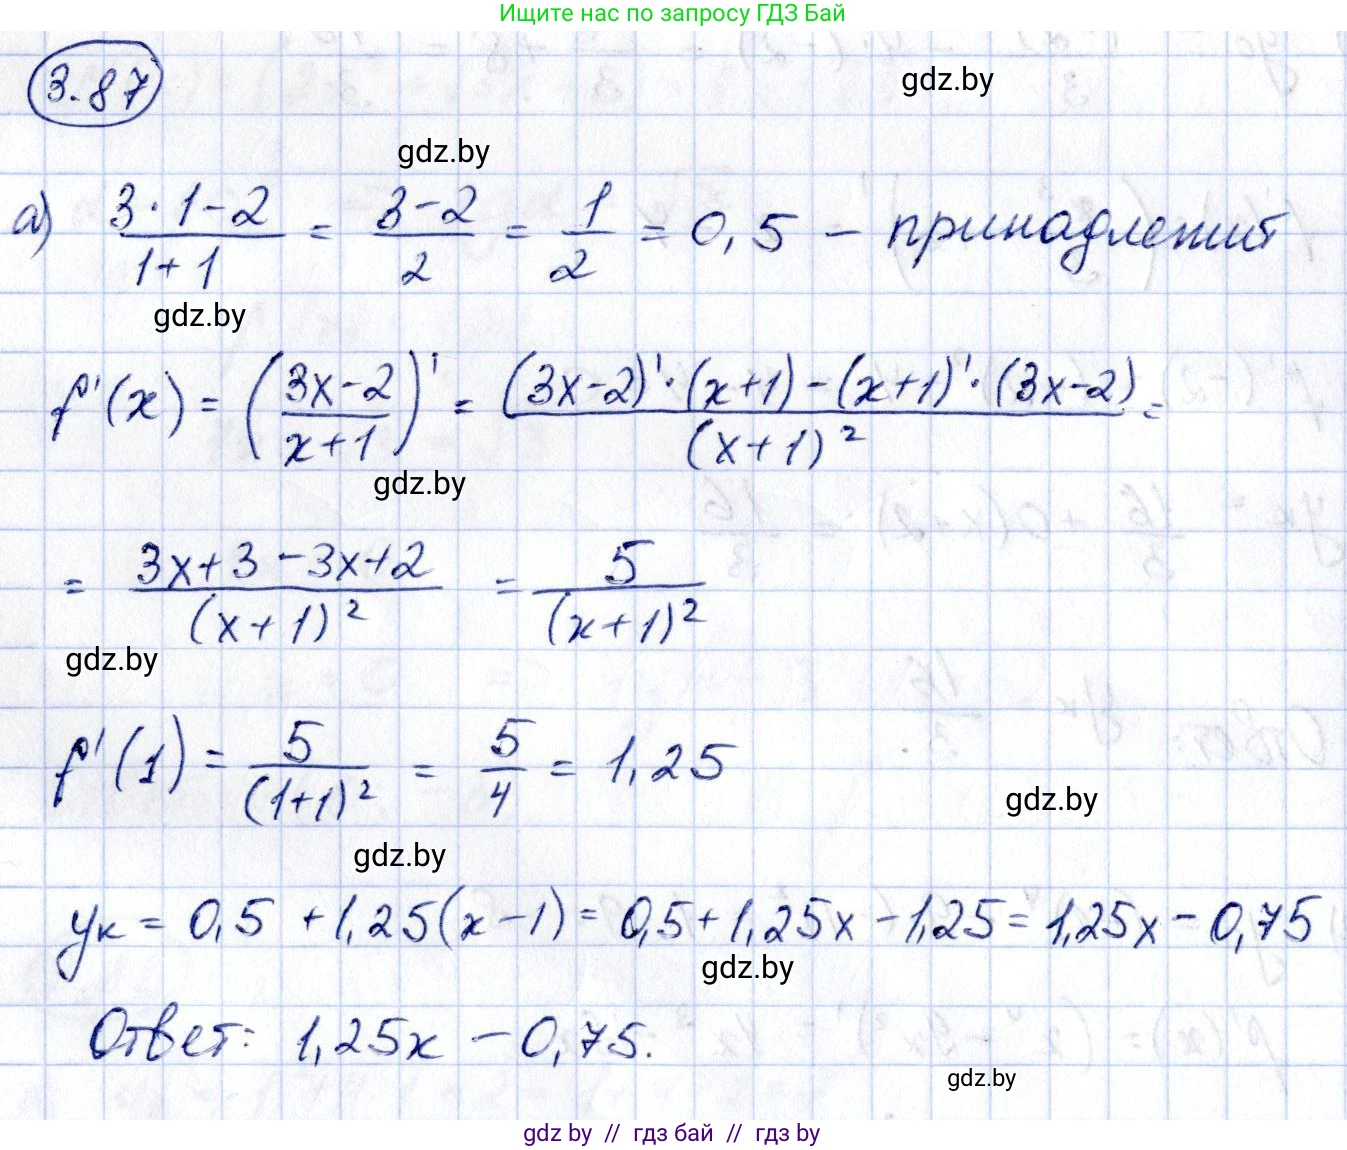 Ищите нас по запросу ГДЗ Бай
3.87
gdz.by
gdz.by
а) (3·1-2)/(1+1) = (3-2)/2 = 1/2 = 0,5 - принадлежит
gdz.by
f'(x) = ((3x-2)/(x+1))' = ((3x-2)'·(x+1)-(x+1)'·(3x-2))/(x+1)² =
gdz.by
= (3x+3-3x+2)/(x+1)² = 5/(x+1)²
gdz.by
f'(1) = 5/(1+1)² = 5/4 = 1,25
gdz.by
gdz.by
yк = 0,5 + 1,25(x-1) = 0,5+1,25x-1,25 = 1,25x - 0,75
gdz.by
Ответ: 1,25x - 0,75.
gdz.by
gdz by // гдз бай // гдз by